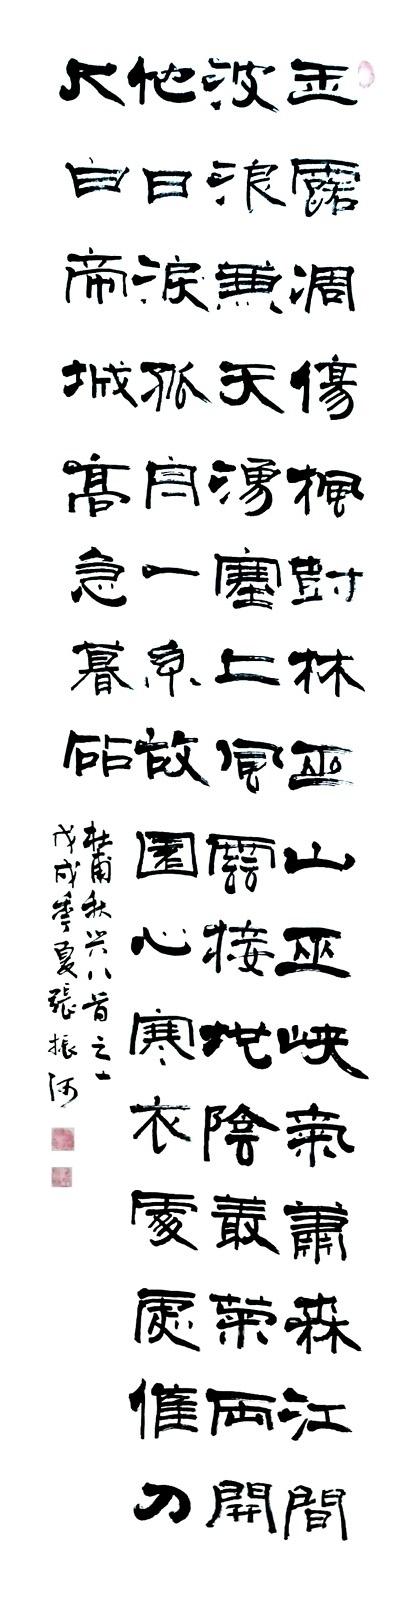 玉露凋傷楓尌林巫山巫峽氣蕭森江間
波浪兼天湧塞上風雲接地陰叢菊兩開
他日淚孤舟一系故園心寒衣處處催刀
尺白帝城高急暮砧
杜甫秋兴八首之一
戊戌季夏張振河